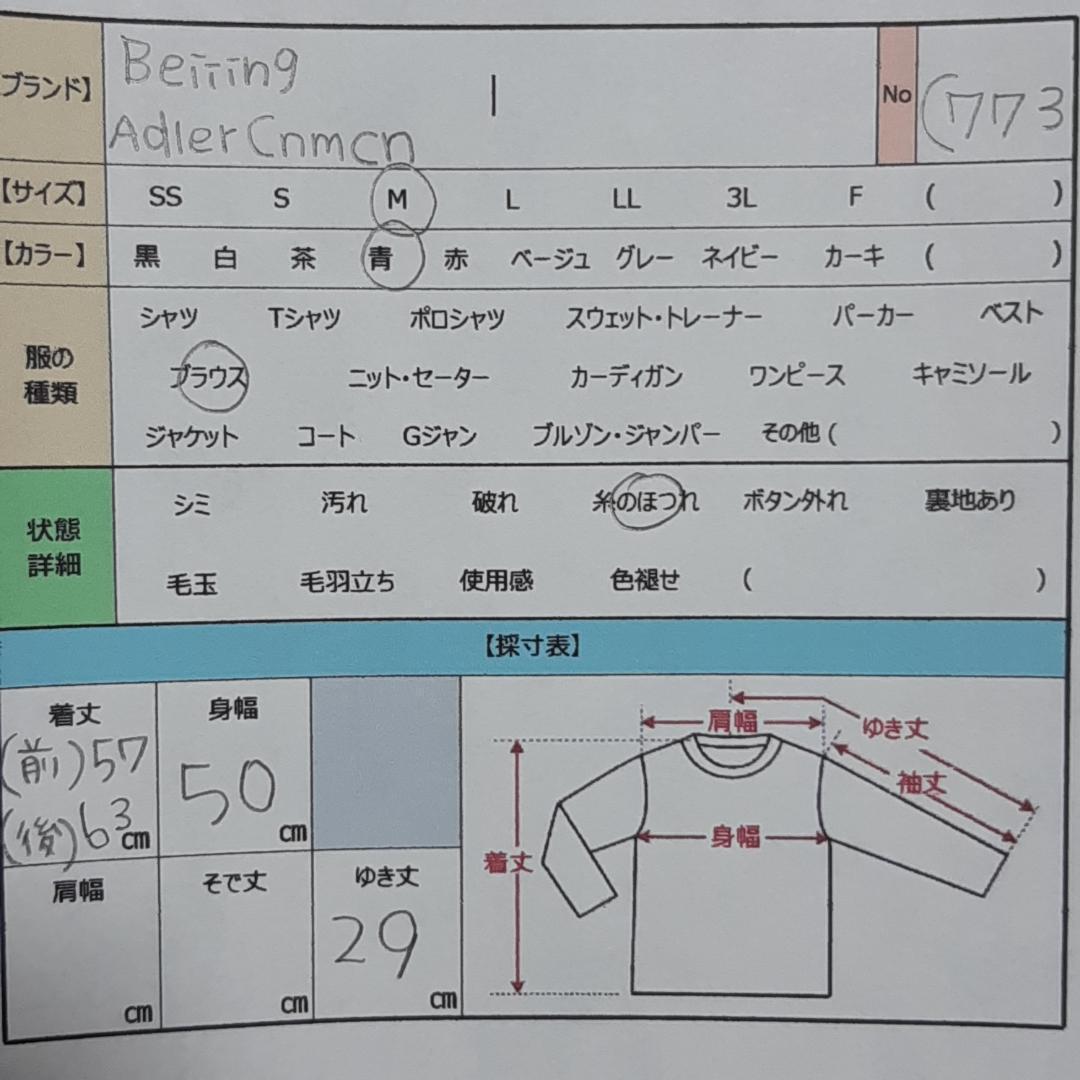 【ブランド】
Beiiing
Adler Cnmcn
No
(773
【サイズ】 SS S M L LL 3L F ( )
【カラー】 黒 白 茶 青 赤 ベージュ グレー ネイビー カーキ ( )
服の
種類
シャツ Tシャツ ポロシャツ スウェット・トレーナー パーカー ベスト
ブラウス ニット・セーター カーディガン ワンピース キャミソール
ジャケット コート Gジャン ブルゾン・ジャンパー その他 ( )
状態
詳細
シミ 汚れ 破れ 糸のほつれ ボタン外れ 裏地あり
毛玉 毛羽立ち 使用感 色褪せ ( )
【採寸表】
着丈
(前)57
(後)63 cm
身幅
50
cm
肩幅
cm
そで丈
cm
ゆき丈
29
cm
肩幅
ゆき丈
袖丈
身幅
着丈